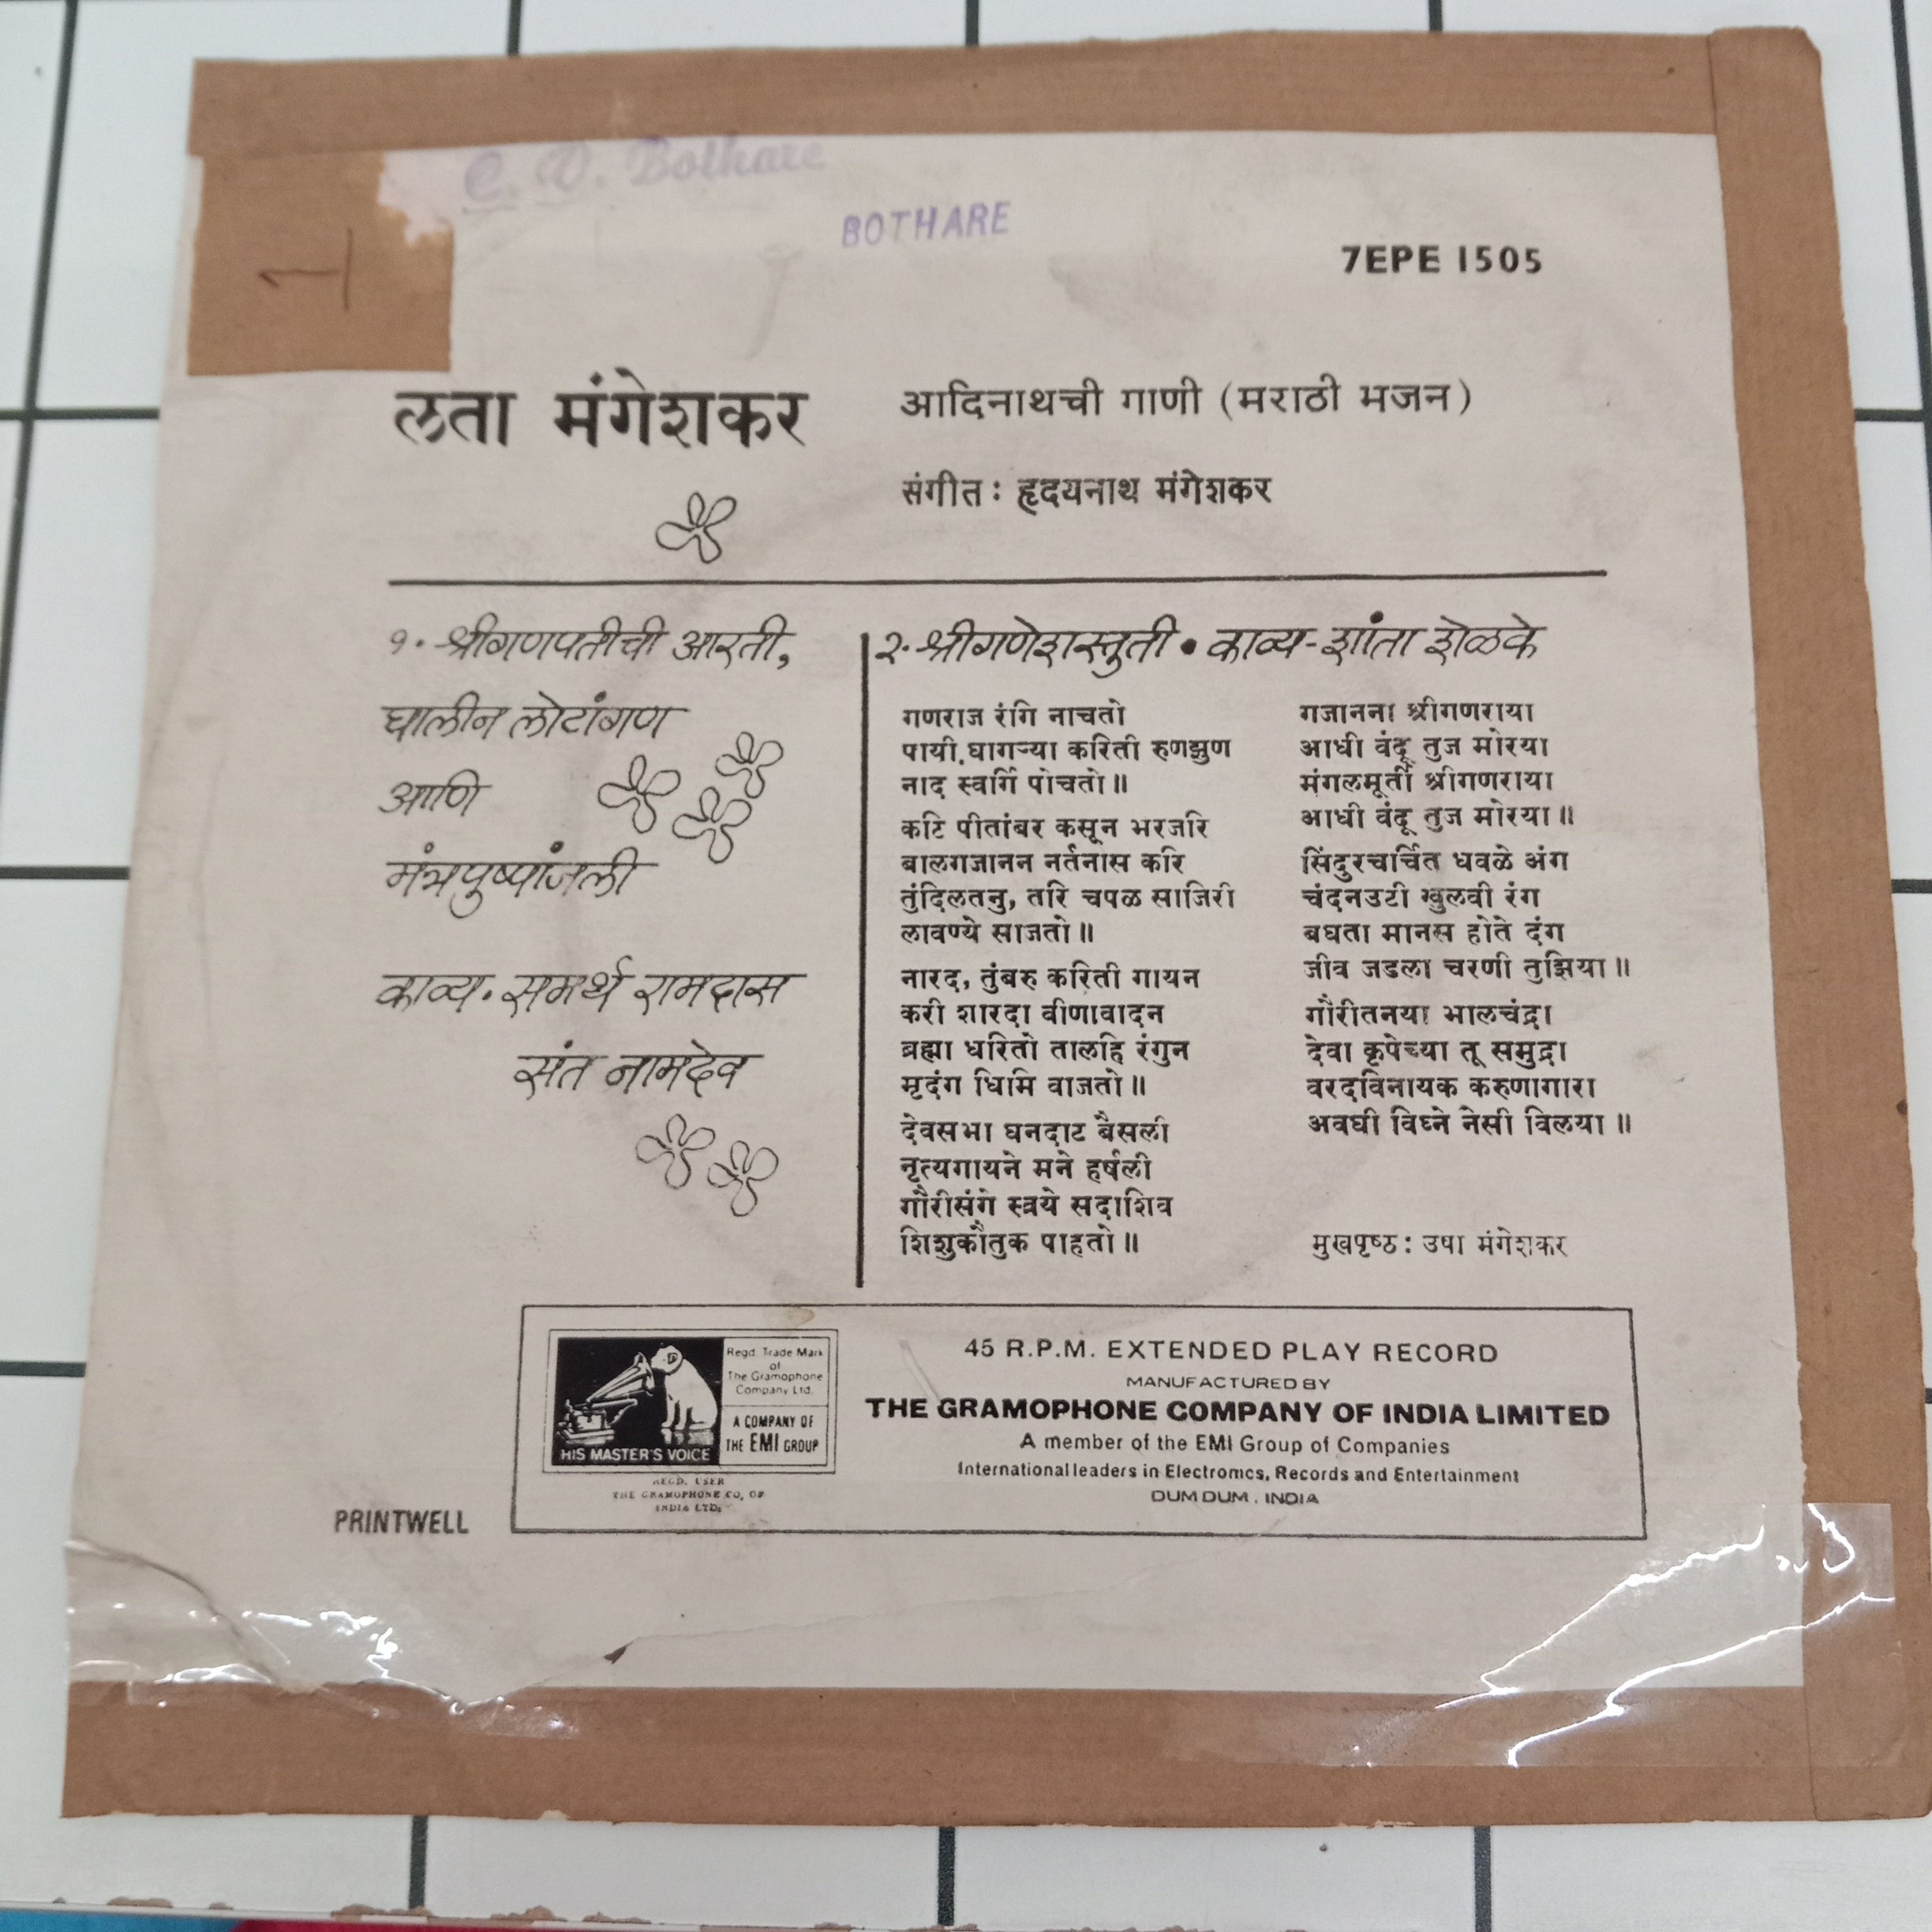 C. D. Bothare
BOTHARE
7EPE 1505
1
लता मंगेशकर
आदिनाथची गाणी (मराठी भजन)
संगीत: हृदयनाथ मंगेशकर
१. श्रीगणपतीची आरती,
घालीन लोटांगण
आणि
मंत्रपुष्पांजली
काव्य. समर्थ रामदास
संत नामदेव
२. श्रीगणेशस्तुती • काव्य-शांता शेळके
गणराज रंगि नाचतो
पायी.घागऱ्या करिती रुणझुण
नाद स्वर्गि पोचतो॥
कटि पीतांबर कसून भरजरि
बालगजानन नर्तनास करि
तुंदिलतनु, तरि चपळ साजिरी
लावण्ये साजतो॥
नारद, तुंबरु करिती गायन
करी शारदा वीणावादन
ब्रह्मा धरितो तालहि रंगुन
मृदंग धिमि वाजतो॥
देवसभा घनदाट बैसली
नृत्यगायने मने हर्षली
गौरीसंगे स्वये सदाशिव
शिशुकौतुक पाहतो॥
गजानना श्रीगणराया
आधी वंदू तुज मोरया
मंगलमूर्ती श्रीगणराया
आधी वंदू तुज मोरया॥
सिंदुरचर्चित धवळे अंग
चंदनउटी खुलवी रंग
बघता मानस होते दंग
जीव जडला चरणी तुझिया॥
गौरीतनया भालचंद्रा
देवा कृपेच्या तू समुद्रा
वरदविनायक करुणागारा
अवघी विघ्ने नेसी विलया॥
मुखपृष्ठ: उषा मंगेशकर
HIS MASTER'S VOICE
Regd. Trade Mark
of
The Gramophone
Company Ltd.
A COMPANY OF
THE EMI GROUP
REGD. USER
THE GRAMOPHONE CO. OF
INDIA LTD.
45 R.P.M. EXTENDED PLAY RECORD
MANUFACTURED BY
THE GRAMOPHONE COMPANY OF INDIA LIMITED
A member of the EMI Group of Companies
International leaders in Electronics, Records and Entertainment
DUM DUM, INDIA
PRINTWELL